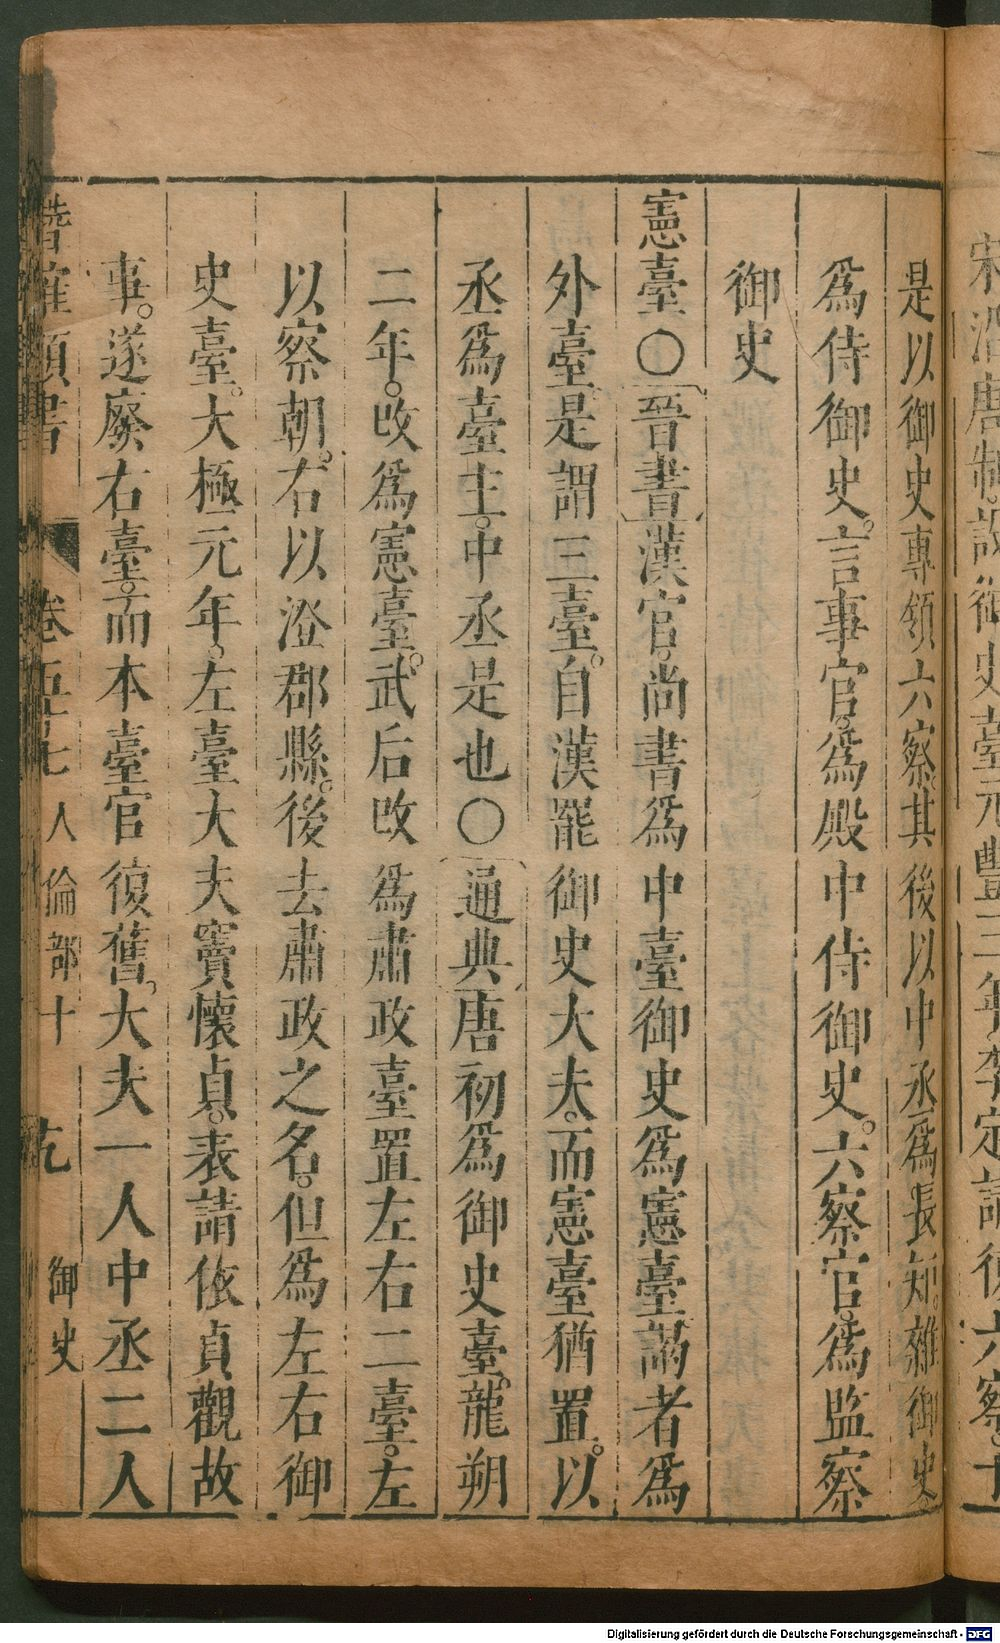 宋沿唐制。設御史臺。元豐三年。李定請復六察。于
是以御史專領六察。其後以中丞爲長。知雜御史
爲侍御史。言事官。爲殿中侍御史。六察官。爲監察
御史
憲臺〇晉書漢官。尚書爲中臺御史爲憲臺謁者爲
外臺是謂三臺。自漢罷御史大夫。而憲臺猶置。以
丞爲臺主。中丞是也〇通典唐初爲御史臺。龍朔
二年。改爲憲臺。武后改爲肅政臺置左右二臺。左
以察朝。右以澄郡縣。後去肅政之名。但爲左右御
史臺。大極元年。左臺大夫竇懷貞。表請依貞觀故
事。遂廢右臺。而本臺官復舊。大夫一人中丞二人
潛確類書 卷五十七 人倫部十 御史
Digitalisierung gefördert durch die Deutsche Forschungsgemeinschaft - DFG